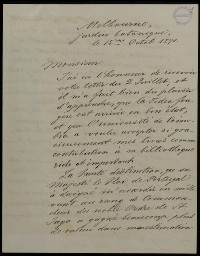 Melbourne,
jardin botanique,
le 15me Octob 1871.
Monsieur
J'ai eu l'honneur de recevoir
votre lettre du 2 Juillet, et
m'a fait bien du plaisir
d'apprendre, que le Todea
est arrivé en bon état,
et que l'université de
a voulu accepter si
mes livres comme
contribution à sa bibliothèque
et importante.
La haute distinction, que sa
Majesté le Roi de Portugal
a daigné m'accorder en
au rang de
deur du noble Ordre de St
Jago a gagné beaucoup plus
de valeur dans mon